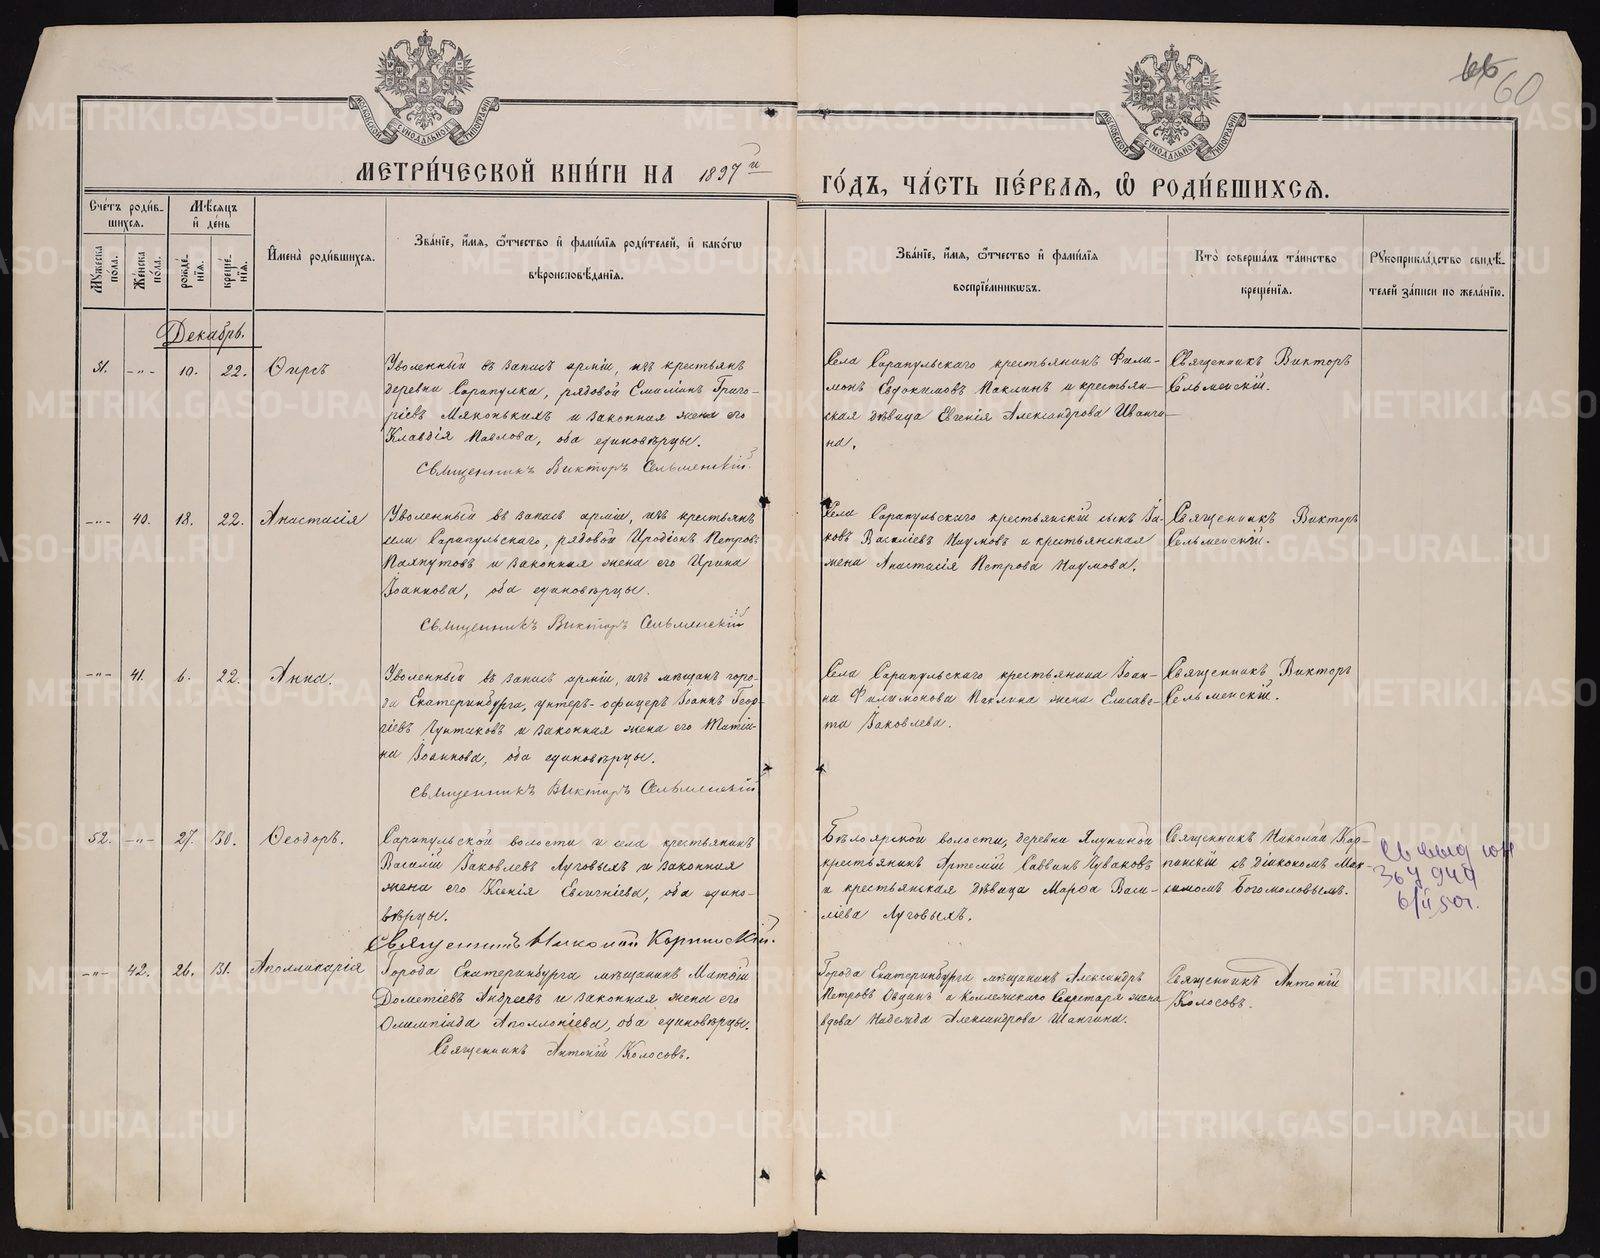 60
МОСКОВСКОЙ СѴНОДАЛЬНОЙ ТИПОГРАФІИ
МОСКОВСКОЙ СѴНОДАЛЬНОЙ ТИПОГРАФІИ
МЕТРИ́ЧЕСКОЙ КНИ́ГИ НА 1897й ГО́ДЪ, ЧА́СТЬ ПЕ́РВАѦ, Ѽ РОДИ́ВШИХСѦ.
Сче́тъ роди́вшихсѧ.
Мꙋ́жеска пола.
Же́нска пола.
Мѣ́сѧцъ и҆ де́нь
рожде́нїѧ.
креще́нїѧ.
И҆мена̀ роди́вшихсѧ.
Зва́нїе, и҆́мѧ, ѻ҆́тчество и҆ фами́лїѧ роди́телей, и҆ како́гѡ
вѣроисповѣ́данїѧ.
Зва́нїе, и҆́мѧ, ѻ҆́тчество и҆ фами́лїѧ
воспрїе́мникѡвъ.
Кто̀ соверша́лъ та́инство
креще́нїѧ.
Рꙋкоприкла́дство свидѣ́телей за́писи по жела́нїю.
Декабрь.
51. -„- 10. 22. Ѳирсъ
Уволенный въ запасъ арміи, изъ крестьянъ
деревни Сарапулка, рядовой Емиліанъ Григо-
ріевъ Мяконькихъ и законная жена его
Клавдія Павлова, оба единовѣрцы.
Священникъ Викторъ Сельменскій.
Села Сарапульскаго крестьянинъ Фили-
монъ Евдокимовъ Паклинъ и крестьян-
ская дѣвица Евгенія Александрова Иванги-
на.
Священникъ Викторъ
Сельменскій.
-„- 40. 18. 22. Анастасія
Уволенный въ запасъ арміи, изъ крестьянъ
села Сарапульскаго, рядовой Иродіонъ Петровъ
и законная жена его Ирина
Іоаннова, оба единовѣрцы.
Священникъ Викторъ Сельменскій
Села Сарапульскаго крестьянскій сынъ Іа-
ковъ Василіевъ Наумовъ и крестьянская
жена Анастасія Петрова Наумова.
Священникъ Викторъ
Сельменскій.
-„- 41. 6. 22. Анна.
Уволенный въ запасъ арміи, изъ мѣщанъ горо-
да Екатеринбурга, унтеръ-офицеръ Іоаннъ Геор-
гіевъ и законная жена его Татіа-
на Іоаннова, оба единовѣрцы.
Священникъ Викторъ Сельменскій
Села Сарапульскаго крестьянина Іоан-
на Филимонова Паклина жена Елисаве-
та Іаковлева.
Священникъ Викторъ
Сельменскій.
52. -„- 27. 30. Ѳеодоръ.
Сарапульской волости и села крестьянинъ
Василій Іаковлевъ Луговыхъ и законная
жена его Ксенія Евгеніева, оба едино-
вѣрцы.
Священникъ Николай Корпинскій.
Бѣлоярской волости, деревни Ялуниной
крестьянинъ Артемій Саввинъ Чуваковъ
и крестьянская дѣвица Марѳа Васи-
ліева Луговыхъ.
Священникъ Николай Кор-
пинскій съ діакономъ Мак-
симомъ Богомоловымъ.
364949
-„- 42. 26. 31. Аполлинарія
Города Екатеринбурга мѣщанинъ Матѳій
Дометіевъ Андреевъ и законная жена его
Олимпіада Аполлоніева, оба единовѣрцы.
Священникъ Антоній Колосовъ.
Города Екатеринбурга мѣщанинъ Александръ
Петровъ и Коллежскаго Секретаря жена
вдова Надежда Александрова Шангина.
Священникъ Антоній
Колосовъ.
METRIKI.GASO-URAL.RU